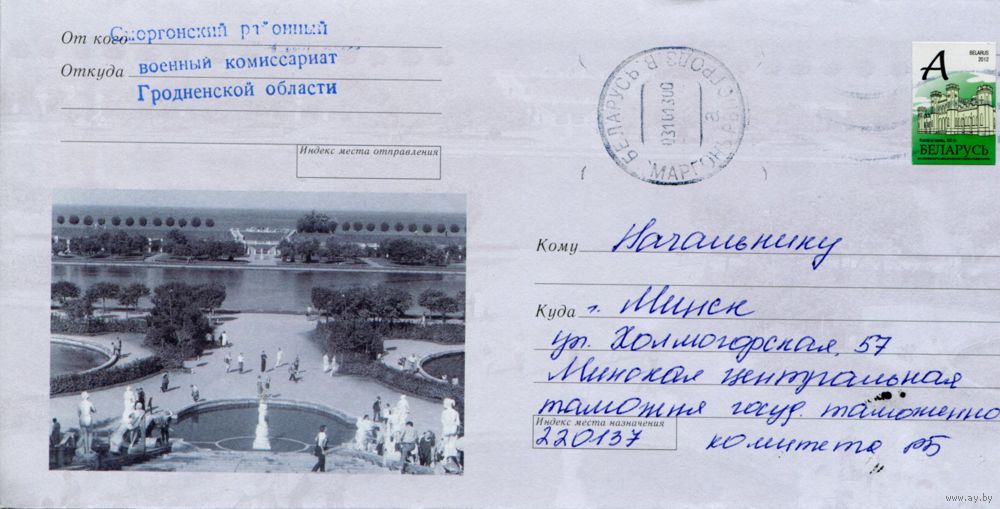 От кого Сморгонский районный
Откуда военный комиссариат
Гродненской области
Индекс места отправления
БЕЛАРУСЬ
03101300
А
BELARUS
2012
БЕЛАРУСЬ
Кому Начальнику
Куда г. Минск
ул. Холмогорская, 57
Минская центральная
таможня госуд. таможенно
Индекс места назначения
220137 комитета РБ
www.ay.by